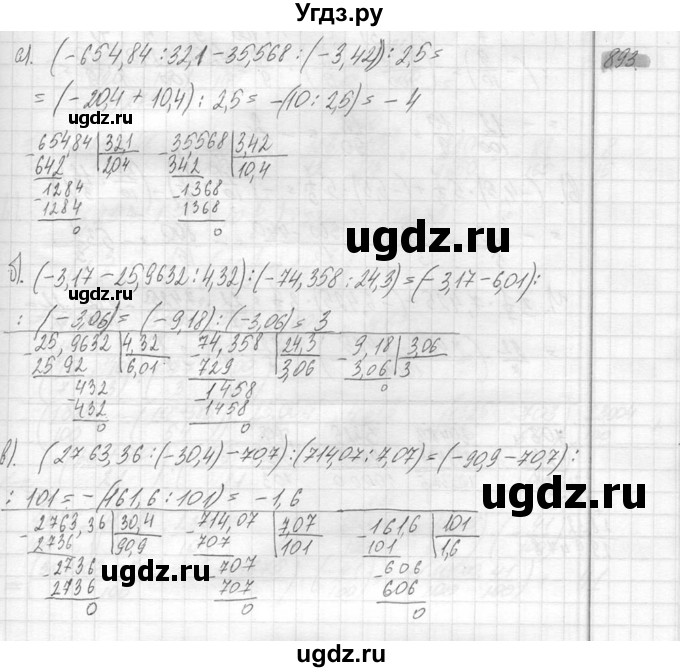 Угдз.ру
893.
а). (-654,84 : 32,1 - 35,568 : (-3,42)) : 2,5 =
= (-20,4 + 10,4) : 2,5 = -(10 : 2,5) = -4
ugdz.ru
65484 321 35568 3,42
642 2,04 342 10,4
1284 1368
1284 1368
0 0
ugdz.ru
б). (-3,17 - 25,9632 : 4,32) : (-74,358 : 24,3) = (-3,17 - 6,01) :
ugdz.ru
: (-3,06) = (-9,18) : (-3,06) = 3
25,9632 4,32 74,358 24,3 9,18 3,06
2592 6,01 729 3,06 3,06 3
432 1458 0
432 1458
0 0
ugdz.ru
в). (2763,36 : (-30,4) - 70,7) : (714,07 : 7,07) = (-90,9 - 70,7) :
: 101 = -(161,6 : 101) = -1,6
2763,36 30,4 714,07 7,07 161,6 101
2736 90,9 707 101 101 1,6
2736 707 606
2736 707 606
0 0 0
ugdz.ru
ugdz.ru
ugdz.ru